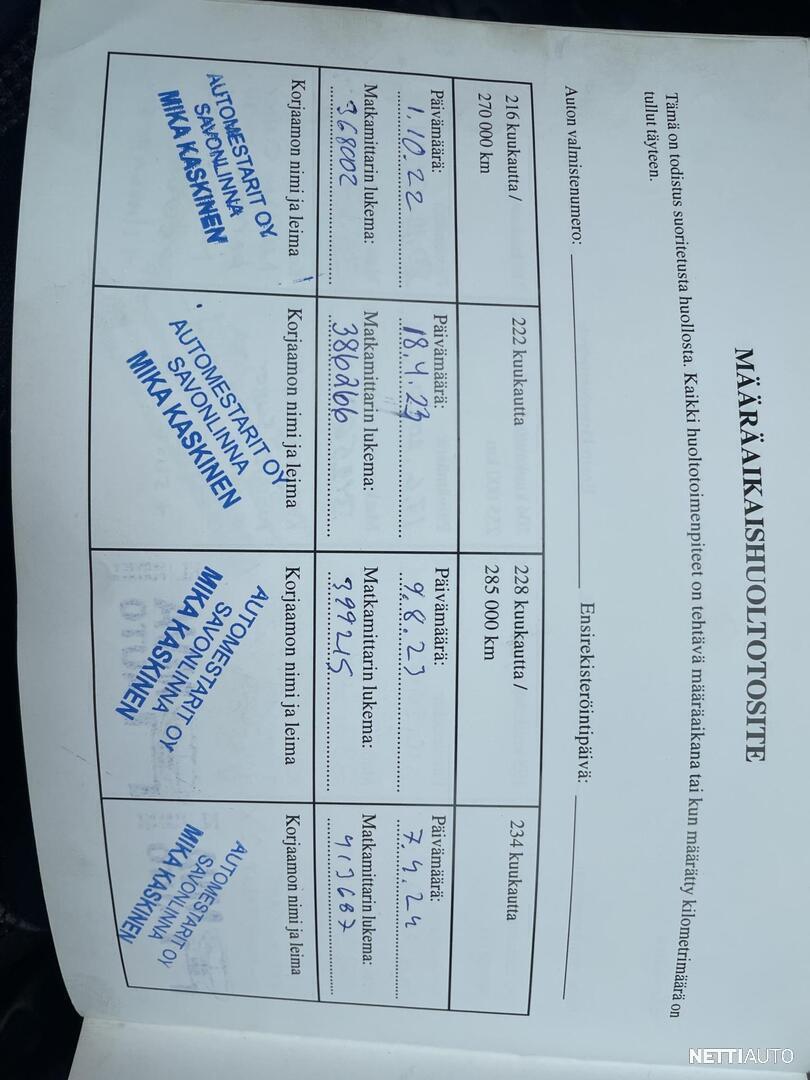 MÄÄRÄAIKAISHUOLTOTOSITE
Tämä on todistus suoritetusta huollosta. Kaikki huoltotoimenpiteet on tehtävä määräaikana tai kun määrätty kilometrimäärä on
tullut täyteen.
Auton valmistenumero: Ensirekisteröintipäivä:
216 kuukautta /
270 000 km
Päivämäärä:
1.10.22
Matkamittarin lukema:
368002
Korjaamon nimi ja leima
AUTOMESTARIT OY
SAVONLINNA
MIKA KASKINEN
222 kuukautta
Päivämäärä:
18.4.23
Matkamittarin lukema:
386266
Korjaamon nimi ja leima
AUTOMESTARIT OY
SAVONLINNA
MIKA KASKINEN
228 kuukautta /
285 000 km
Päivämäärä:
9.8.23
Matkamittarin lukema:
399215
Korjaamon nimi ja leima
AUTOMESTARIT OY
SAVONLINNA
MIKA KASKINEN
234 kuukautta
Päivämäärä:
7.4.24
Matkamittarin lukema:
413687
Korjaamon nimi ja leima
AUTOMESTARIT OY
SAVONLINNA
MIKA KASKINEN
NETTIAUTO